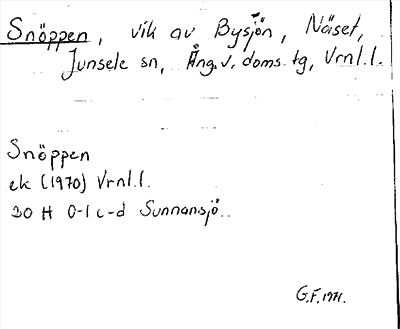 Snöppen, vik av Bysjön, Näset,
Junsele sn, Ång. v. doms. tg, Vrnl.l.
Snöppen
ek (1970) Vrnl.l.
20 H 0-1 c-d Sunnansjö..
G.F. 1971.